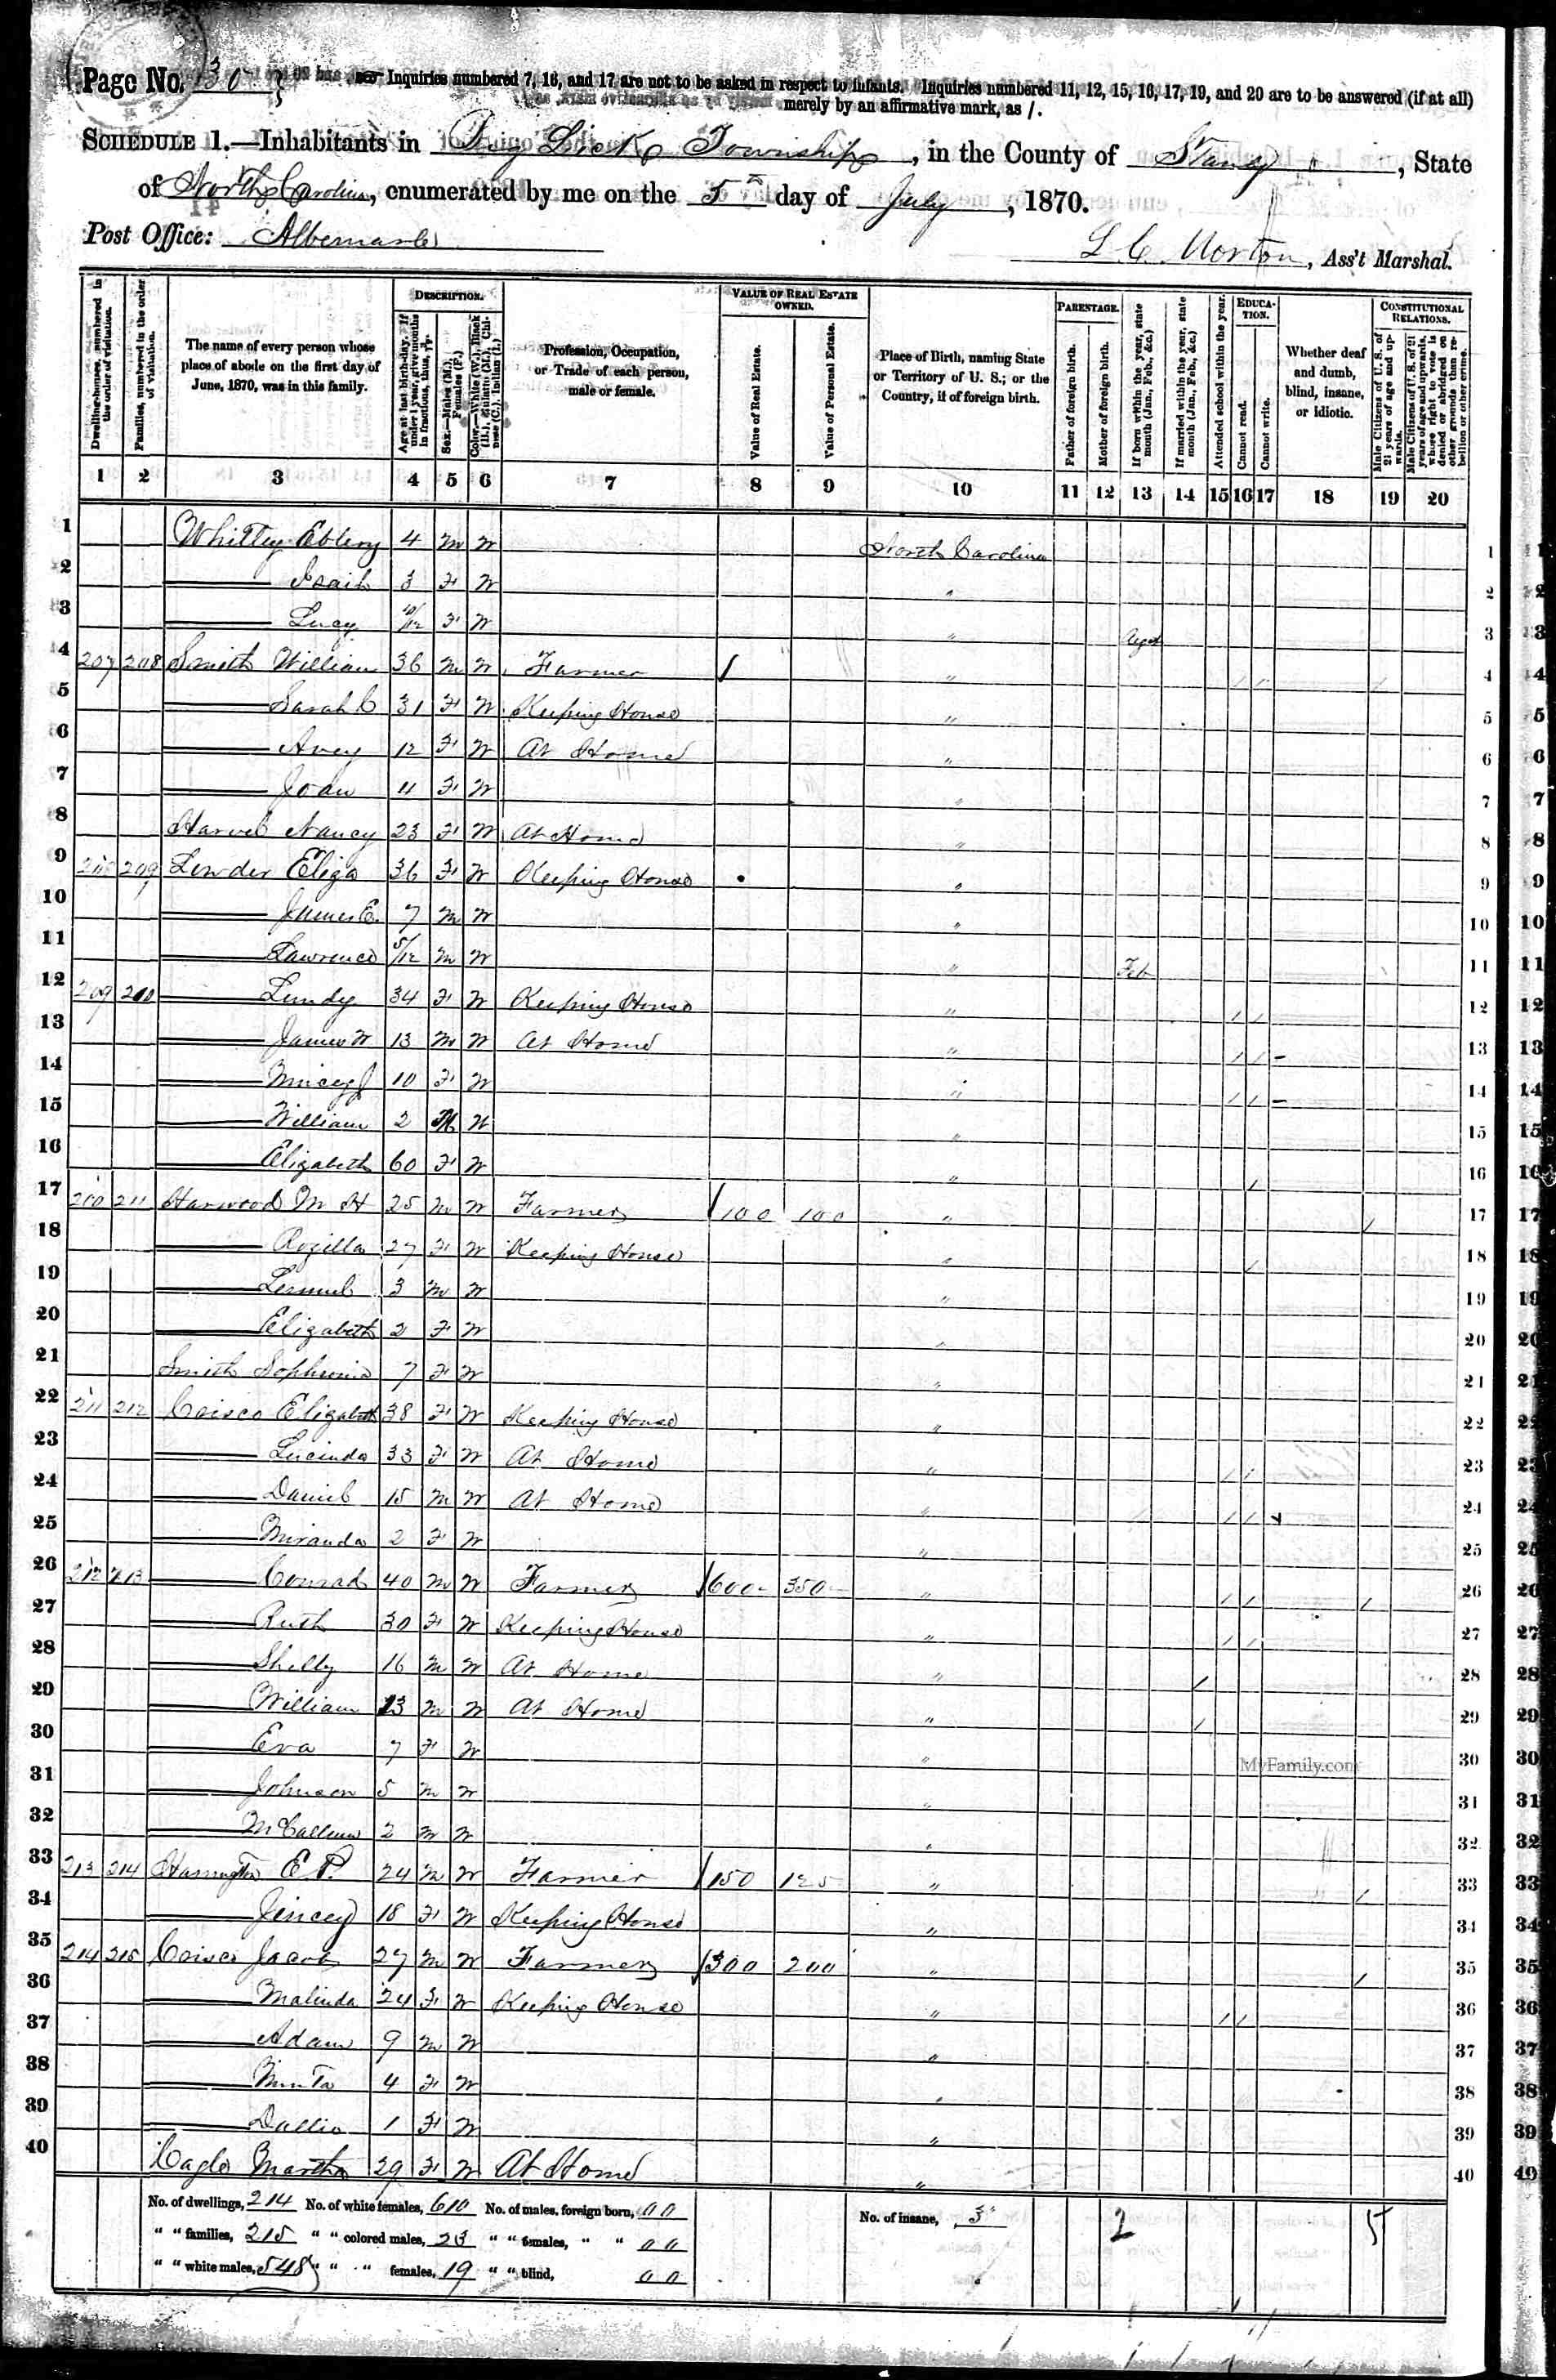 Page No. 30
Inquiries numbered 7, 16, and 17 are not to be asked in respect to infants. Inquiries numbered 11, 12, 15, 16, 17, 19, and 20 are to be answered (if at all)
merely by an affirmative mark, as /.
SCHEDULE 1.—Inhabitants in Big Lick Township, in the County of Stanly, State
of North Carolina, enumerated by me on the 5th day of July, 1870.
Post Office: Albemarle
L C Morton, Ass't Marshal.
DESCRIPTION. VALUE OF REAL ESTATE OWNED. PARENTAGE. EDUCATION. CONSTITUTIONAL RELATIONS.
Dwelling-houses, numbered in the order of visitation.
Families, numbered in the order of visitation.
The name of every person whose place of abode on the first day of June, 1870, was in this family.
Age at last birth-day. If under 1 year, give months in fractions, thus, 3/12.
Sex.—Males (M.), Females (F.)
Color.—White (W.), Black (B.), Mulatto (M.), Chinese (C.), Indian (I.)
Profession, Occupation, or Trade of each person, male or female.
Value of Real Estate.
Value of Personal Estate.
Place of Birth, naming State or Territory of U. S.; or the Country, if of foreign birth.
Father of foreign birth.
Mother of foreign birth.
If born within the year, state month (Jan., Feb., &c.)
If married within the year, state month (Jan., Feb., &c.)
Attended school within the year.
Cannot read.
Cannot write.
Whether deaf and dumb, blind, insane, or idiotic.
Male Citizens of U. S. of 21 years of age and upwards.
Male Citizens of U. S. of 21 years of age and upwards, whose right to vote is denied or abridged on other grounds than rebellion or other crime.
1 2 3 4 5 6 7 8 9 10 11 12 13 14 15 16 17 18 19 20
1 Whitley 4 M W North Carolina 1
2 Isaih 3 F W " 2
3 Lucy F W " 3
4 207 208 Smith William 36 M W Farmer " / / / 4
5 Sarah C 31 F W Keeping House " 5
6 Avey 12 F W At Home " 6
7 Joan 11 F W " 7
8 Harvel Nancy 23 F W At Home " 8
9 208 209 Lowder Eliza 36 F W Keeping House " 9
10 James E. 7 M W " 10
11 Lawrence 5/12 M W " Feb 11
12 209 210 Lundy 34 F W Keeping House " / / 12
13 James W 13 M W At Home " / / 13
14 10 F W " / / 14
15 William 2 M W " 15
16 Elizabeth 60 F W " / 16
17 210 211 Harwood M H 25 M W Farmer 100 100 " / 17
18 Rozilla 27 F W Keeping House " / 18
19 Lemuel 3 M W " 19
20 Elizabeth 2 F W " 20
21 Smith Sophronia 7 F W " 21
22 211 212 Crisco Elizabeth 38 F W Keeping House " 22
23 Lucinda 33 F W At Home " / / 23
24 Daniel 15 M W At Home " / / 24
25 Miranda 2 F W " 25
26 212 213 Conrad 40 M W Farmer 600 350 " / / / 26
27 Ruth 30 F W Keeping House " / / 27
28 Shelly 16 M W At Home " / 28
29 William 13 M W At Home " / 29
30 Eva 7 F W " 30
31 Johnson 5 M W " 31
32 McCallum 2 M W " 32
33 213 214 Harrington E. P. 24 M W Farmer 150 125 " / 33
34 Jincey 18 F W Keeping House " 34
35 214 215 Crisco Jacob 27 M W Farmer 300 200 " / 35
36 Malinda 24 F W Keeping House " / / 36
37 Adam 9 M W " 37
38 Minta 4 F W " 38
39 Dallie 1 F W " 39
40 Cagle Martha 29 F W At Home " 40
MyFamily.com
No. of dwellings, 214 No. of white females, 610 No. of males, foreign born, 00 No. of insane, 3 2 5
" " families, 215 " " colored males, 23 " " females, " " 00
" " white males, 548 " " " females, 19 " " blind, 00